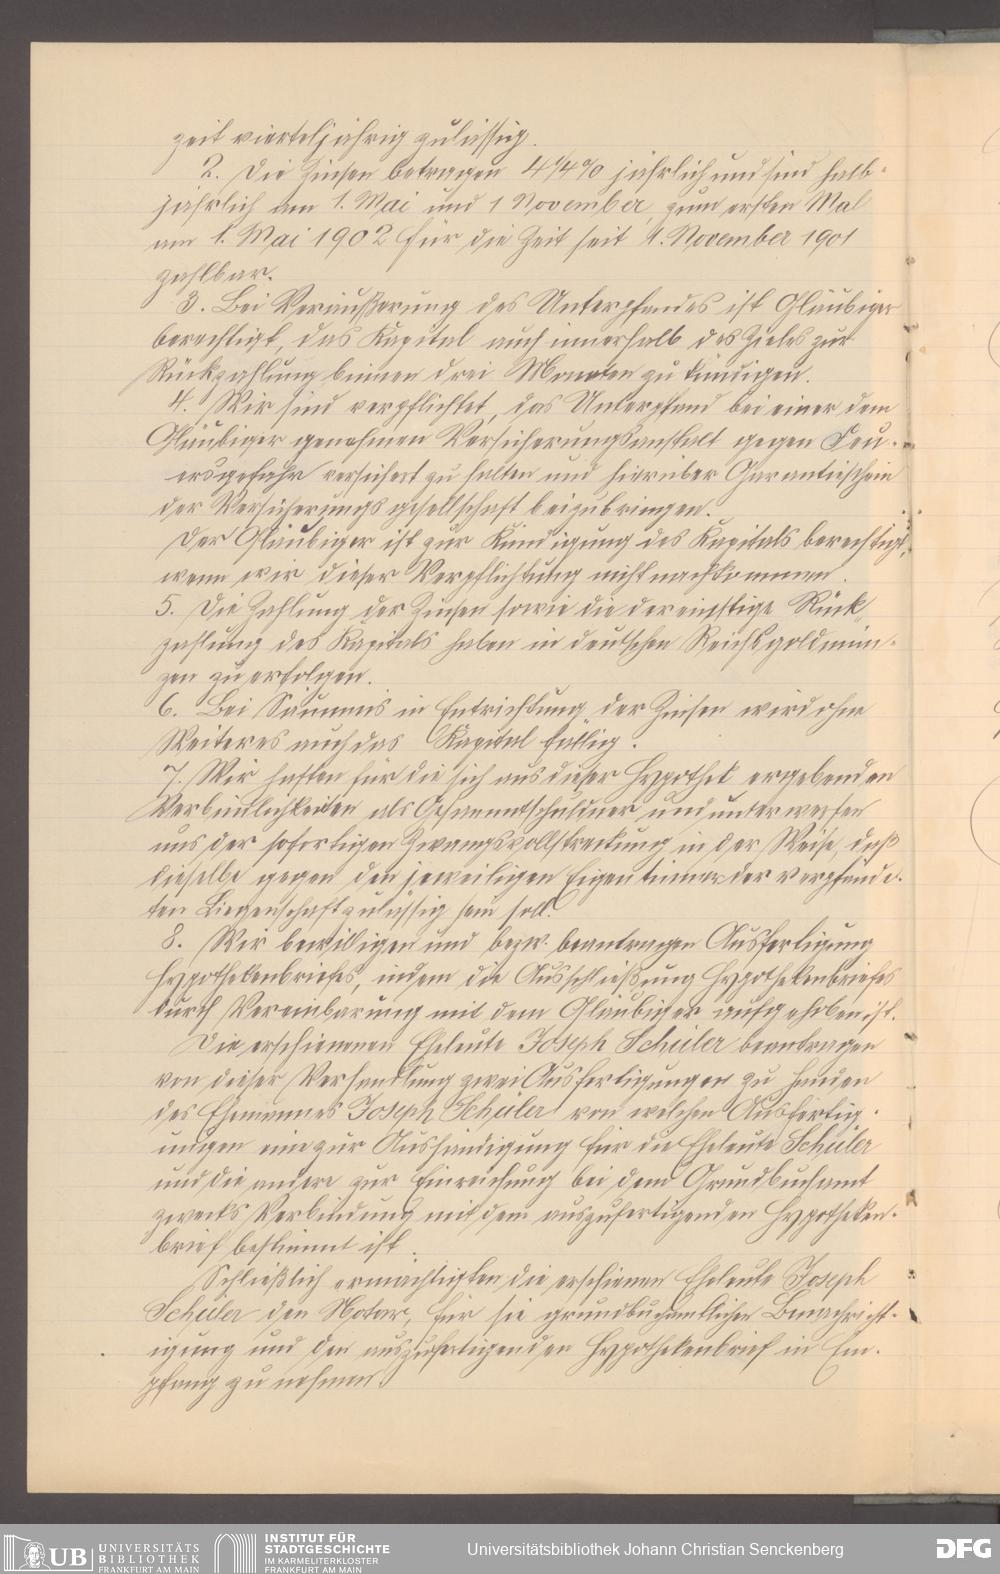 zeit vierteljährig zulässig.
2. Die Zinsen betragen 4 1/4 % jährlich und sind halb-
jährlich am 1. Mai und 1 November, zum ersten Mal
am 1. Mai 1902 für die Zeit seit 4. November 1901
zahlbar.
3. Bei Veräußerung des Unterpfandes ist Gläubiger
berechtigt, das Kapital auch innerhalb des Zieles zur
Rückzahlung binnen drei Monaten zu kündigen.
4. Wir sind verpflichtet, das Unterpfand bei einer dem
Gläubiger genehmen Versicherungsanstalt gegen Feu-
ersgefahr versichert zu halten und hierüber Garantieschein
der Versicherungsgesellschaft beizubringen.
Der Gläubiger ist zur Kündigung des Kapitals berechtigt,
wenn wir dieser Verpflichtung nicht nachkommen.
5. Die Zahlung der Zinsen sowie die dereinstige Rück-
zahlung des Kapitals haben in deutschen Reichsgoldmün-
zen zu erfolgen.
6. Bei Säumnis in Entrichtung der Zinsen wird ohne
Weiteres auch das Kapital fällig.
7. Wir haften für die sich aus dieser Hypothek ergebenden
Verbindlichkeiten als Gesammtschuldner und unterwerfen
uns der sofortigen Zwangsvollstreckung in der Weise, daß
dieselbe gegen den jeweiligen Eigentümer der verpfände-
ten Liegenschaft zulässig sein soll.
8. Wir bewilligen und bezw. beantragen Ausfertigung
Hypothekenbriefes, indem die Ausschließung Hypothekenbriefes
durch Vereinbarung mit dem Gläubiger aufgehoben ist.
Die erschienenen Eheleute Joseph Schüler beantragen
von dieser Verhandlung zwei Ausfertigungen zu Handen
des Ehemannes Joseph Schüler von welchen Ausfertig-
ungen eine zur Aushändigung für die Eheleute Schüler
und die andere zur Einreichung bei dem Grundbuchamt
zwecks Verbindung mit dem auszufertigenden Hypotheken-
brief bestimmt ist.
Schließlich ermächtigten die erschienen Eheleute Joseph
Schüler den Notar, für sie grundbuchamtlichen Benachricht-
igung und den auszufertigenden Hypothekenbrief in Em-
pfang zu nehmen.
UB UNIVERSITÄTS
BIBLIOTHEK
FRANKFURT AM MAIN
INSTITUT FÜR
STADTGESCHICHTE
IM KARMELITERKLOSTER
FRANKFURT AM MAIN
Universitätsbibliothek Johann Christian Senckenberg
DFG